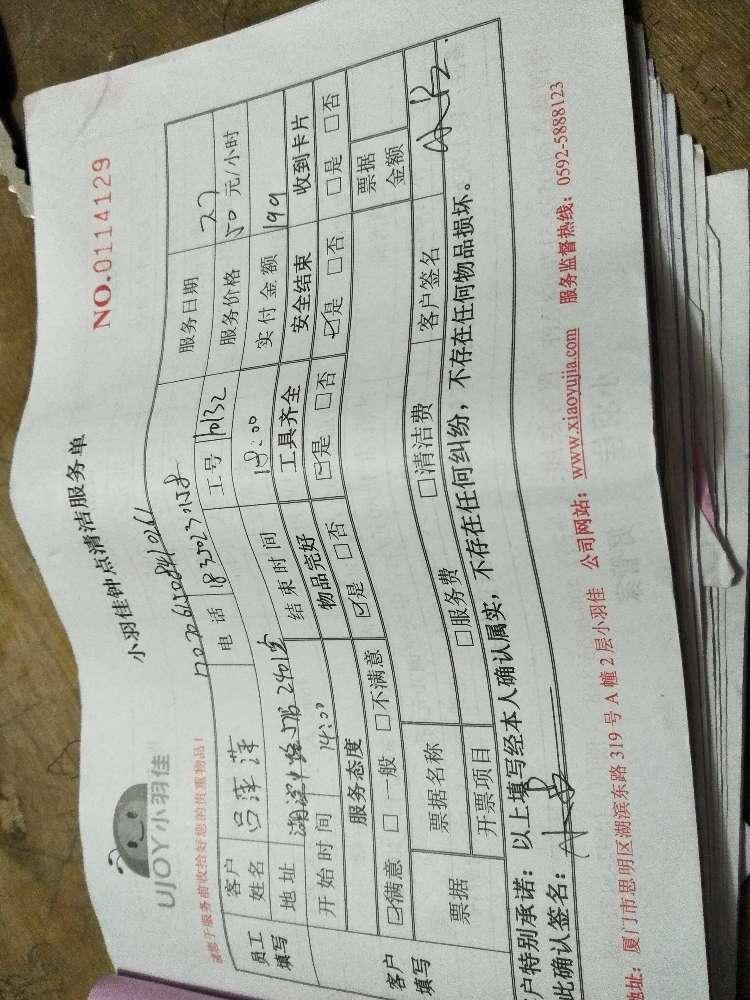 UJOY小羽佳
小羽佳钟点清洁服务单
NO.0114129
请您于服务前收拾好您的贵重物品!
员工填写
客户姓名 吕萍萍 电话 工号 10132 服务日期 27
地址 服务价格 50 元/小时
开始时间 14:00 结束时间 18:00 实付金额 199
客户填写
服务态度 物品完好 工具齐全 安全结束 收到卡片
☑满意 □一般 □不满意 ☑是 □否 ☑是 □否 ☑是 □否 □是 □否
票据 票据名称 票据金额
开票项目 □服务费 □清洁费 客户签名
客户特别承诺：以上填写经本人确认属实，不存在任何纠纷，不存在任何物品损坏。
此确认签名：
地址：厦门市思明区湖滨东路 319 号 A 幢 2 层小羽佳 公司网站：www.xiaoyujia.com 服务监督热线：0592-5888123